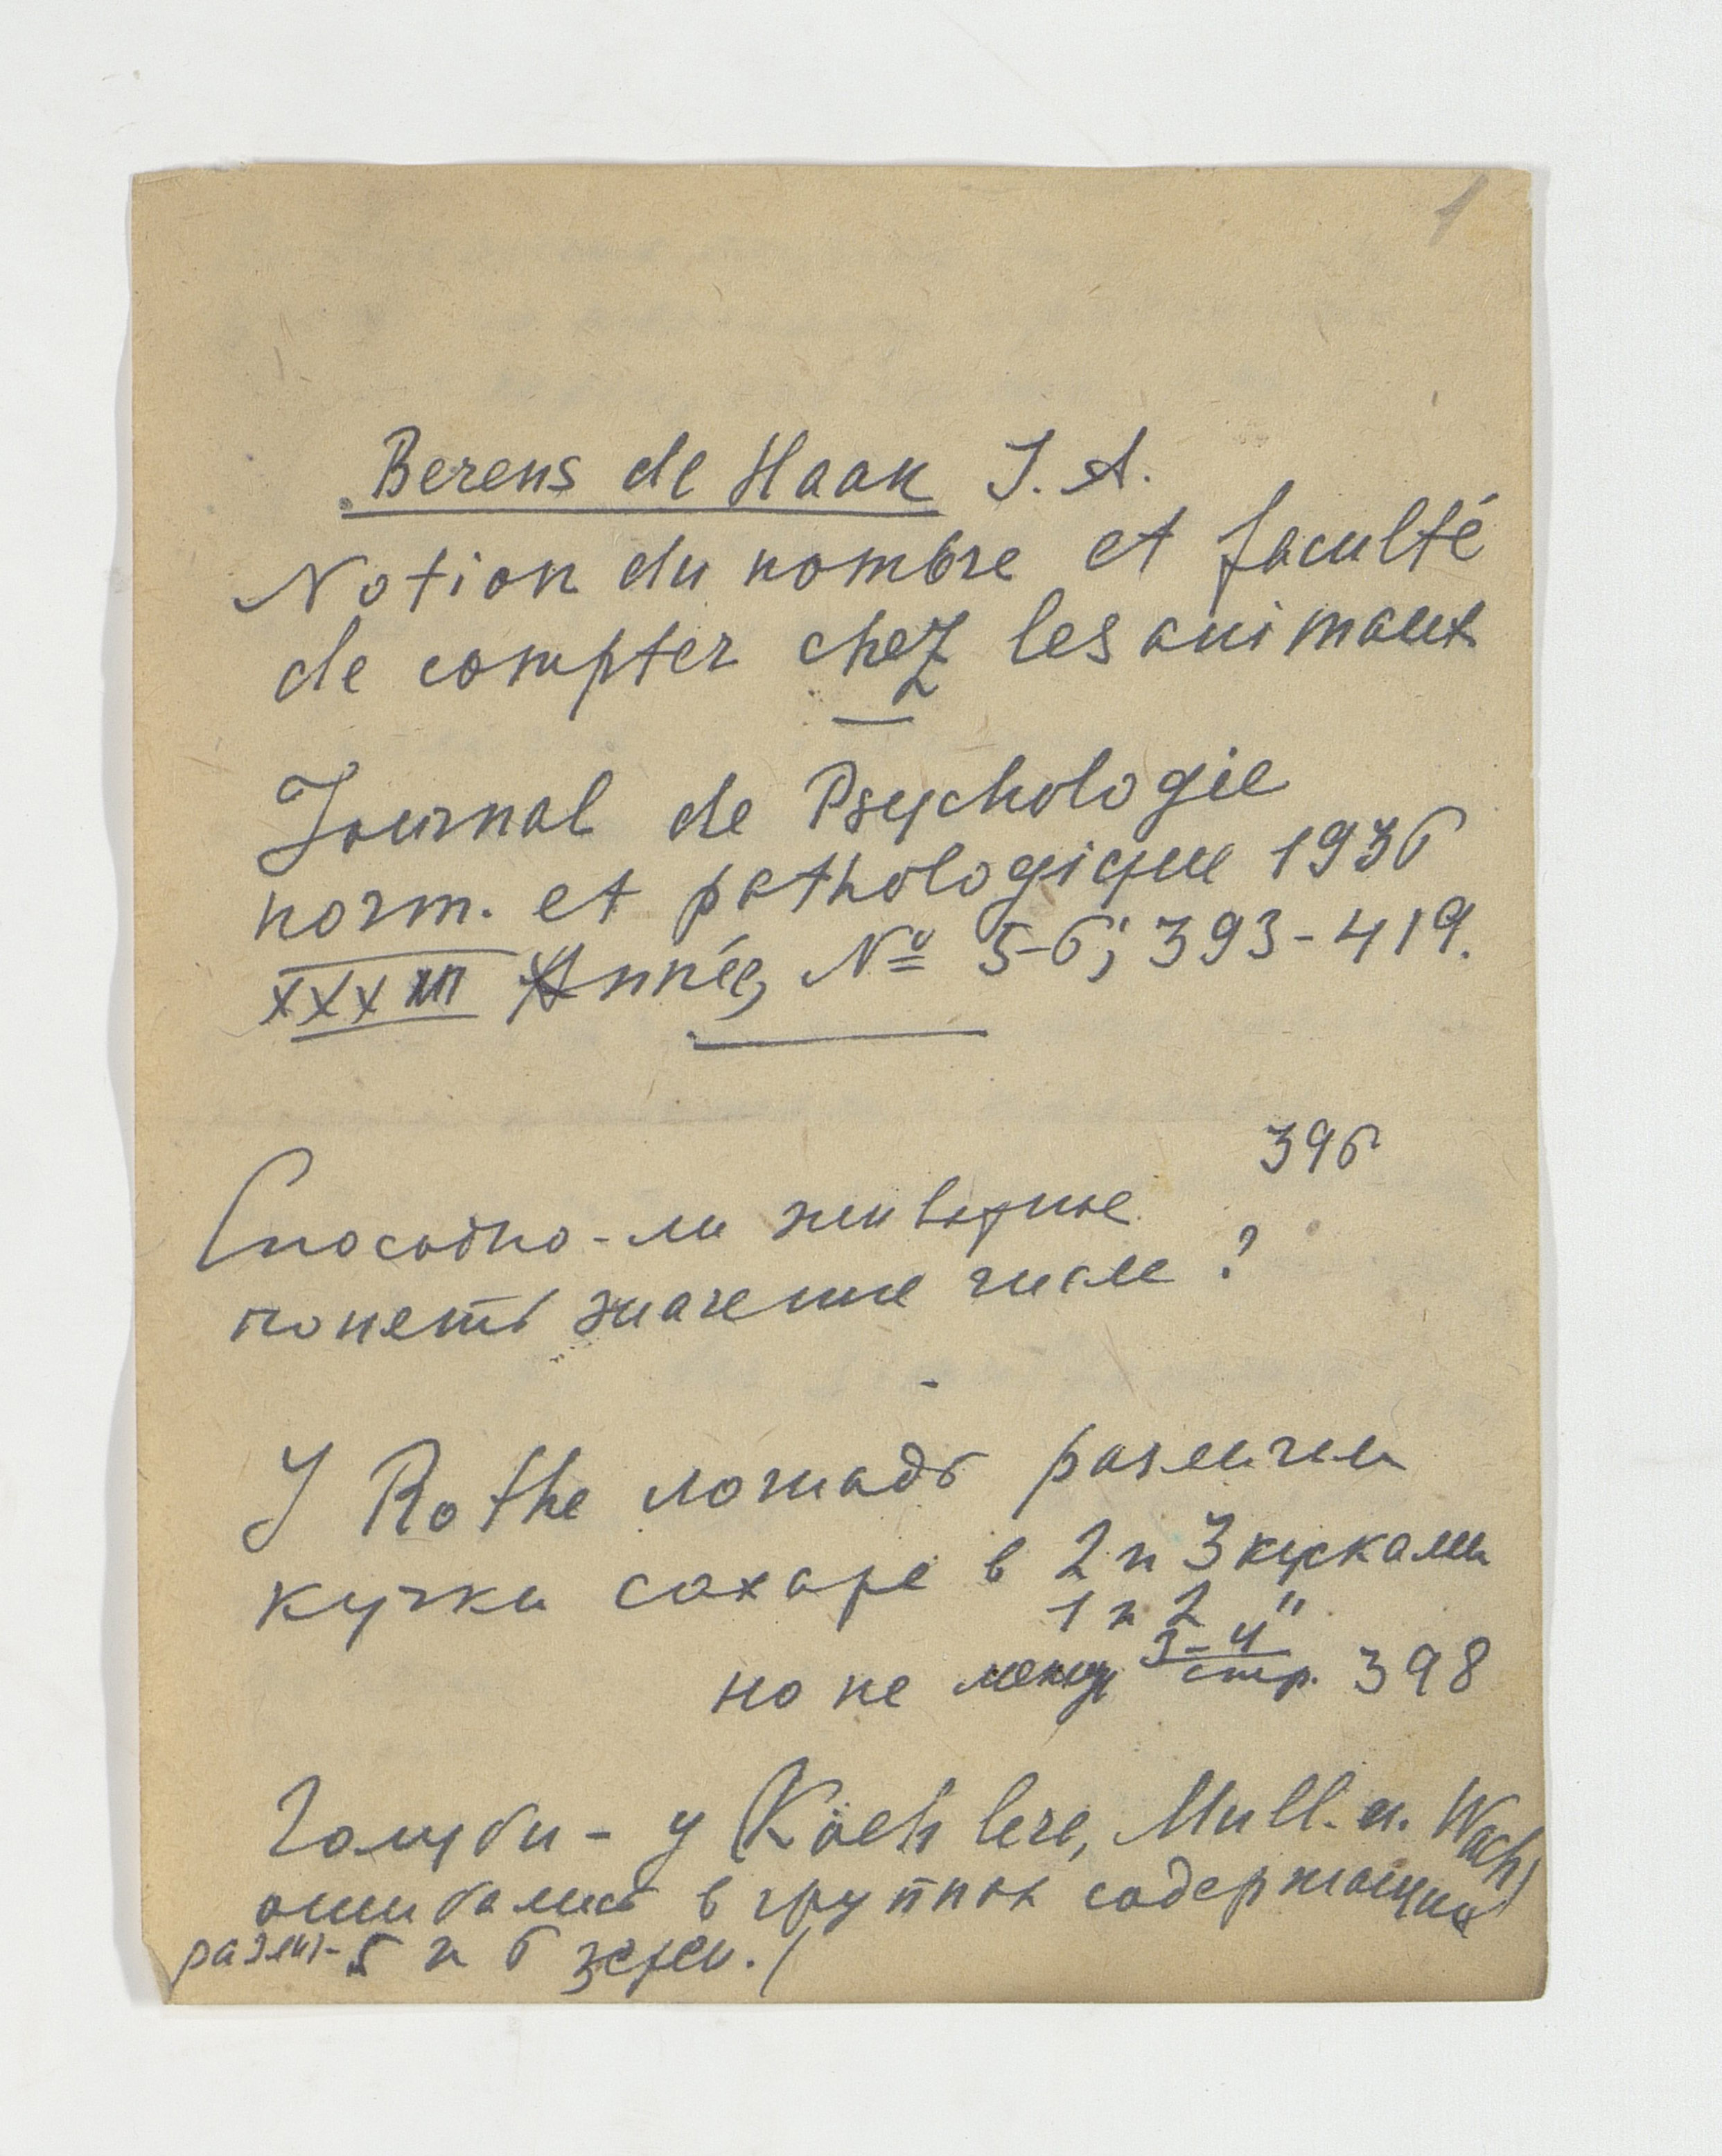 1
Berens de Haan J. A.
Notion du nombre et faculté
de compter chez les animaux
Journal de Psychologie
norm. et pathologique 1936
XXXIII Année, № 5-6; 393-419.
396
Способно-ли животное
понять значение числа ?
У Rothe лошадь различ
кучки сахара в 2 и 3 кусками
1 и 2 "
3-4
но не между стр. 398
Голуби - у (Koehlera, Mull. u. Wach)
ошибались в группах содержащих
разн- 5 и 6 зерен.)